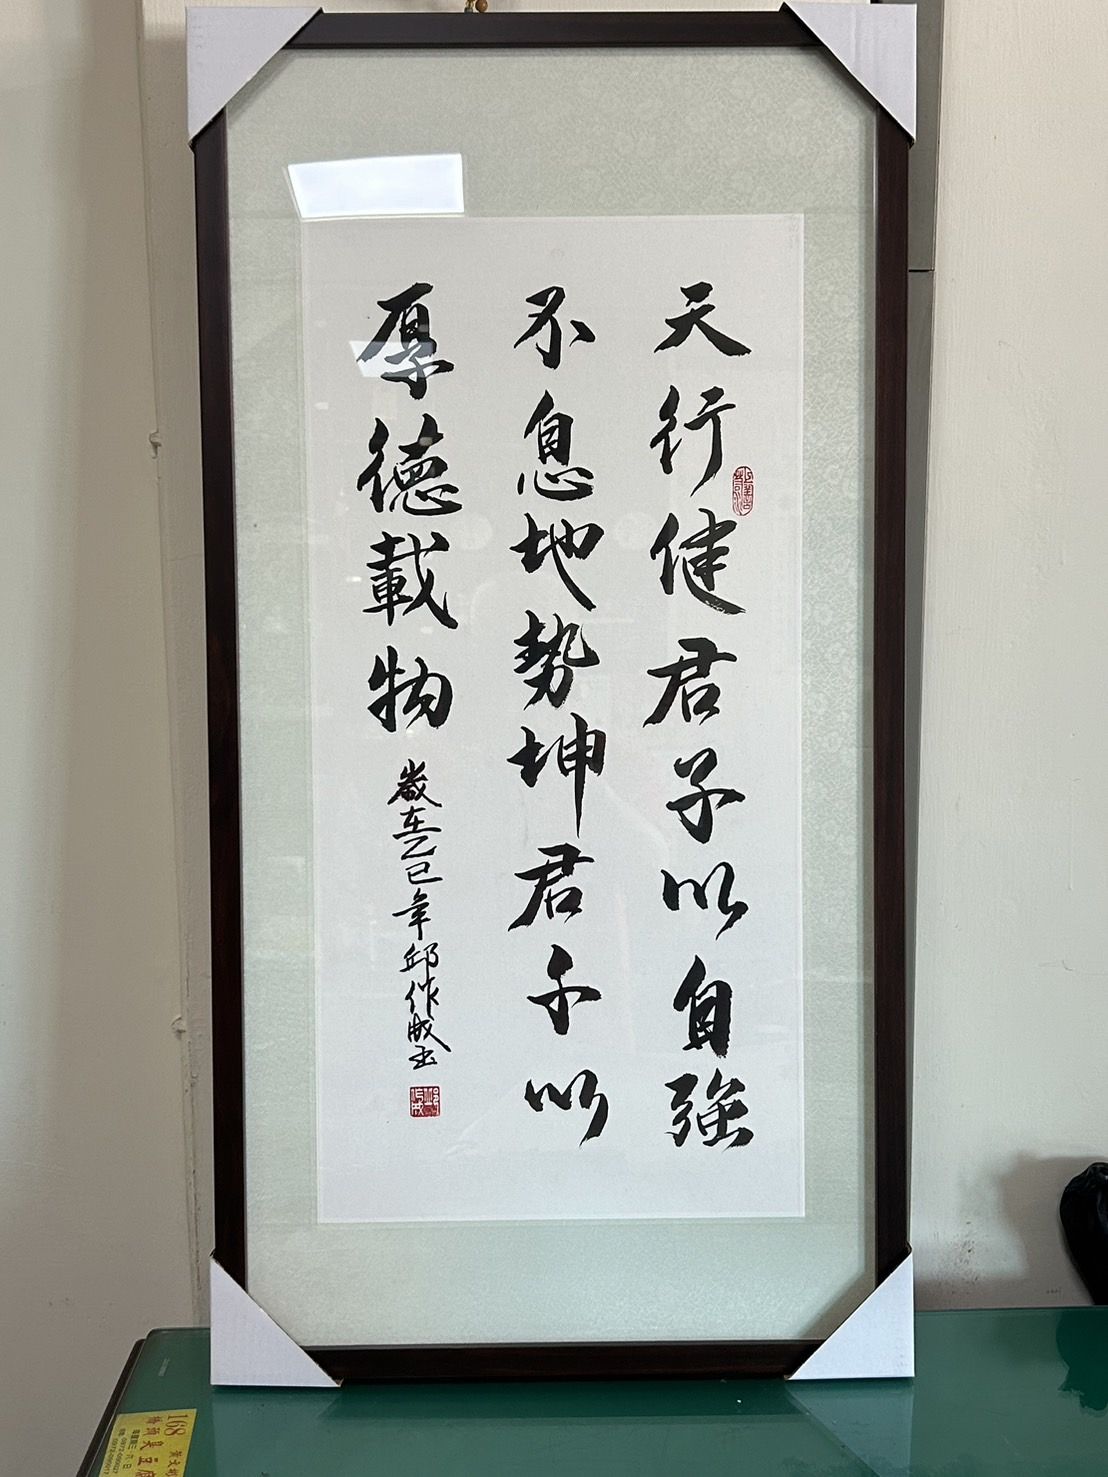 天行健君子以自強
不息地勢坤君子以
厚德載物
歲在乙巳年邱作成書
邱作成
168